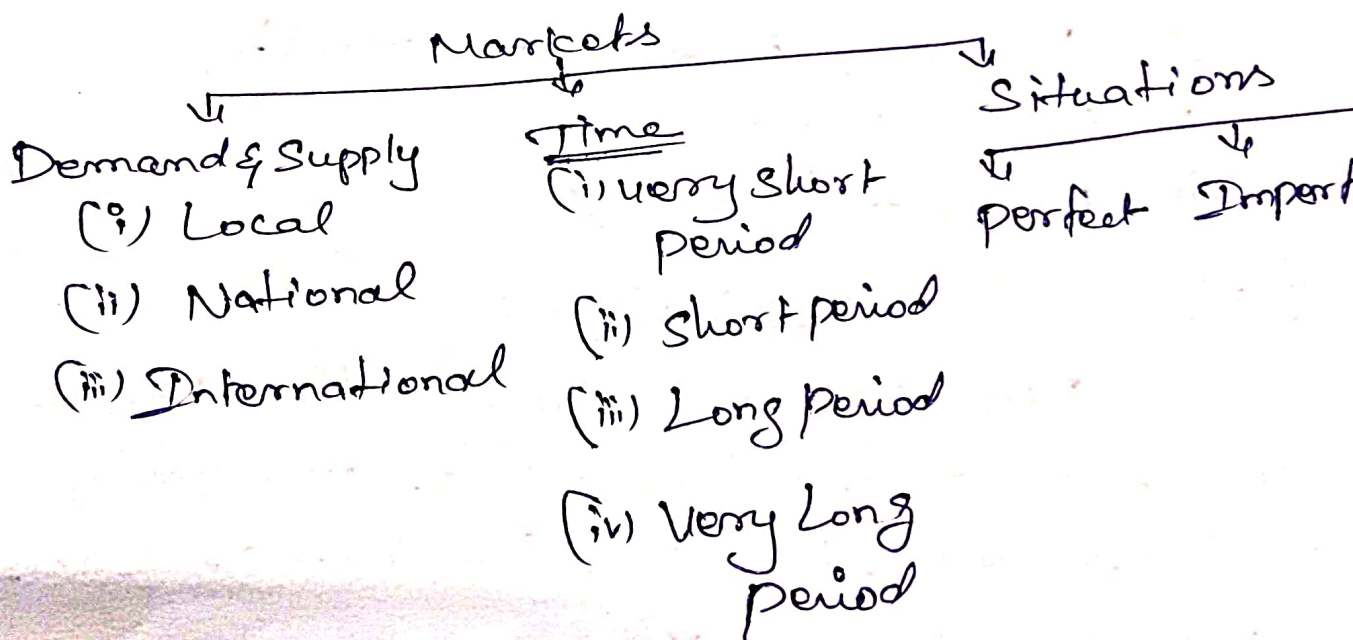 Markets
Demand & Supply
(i) Local
(ii) National
(iii) International
Time
(i) very short
period
(ii) short period
(iii) Long period
(iv) Very Long
period
Situations
perfect Imperf